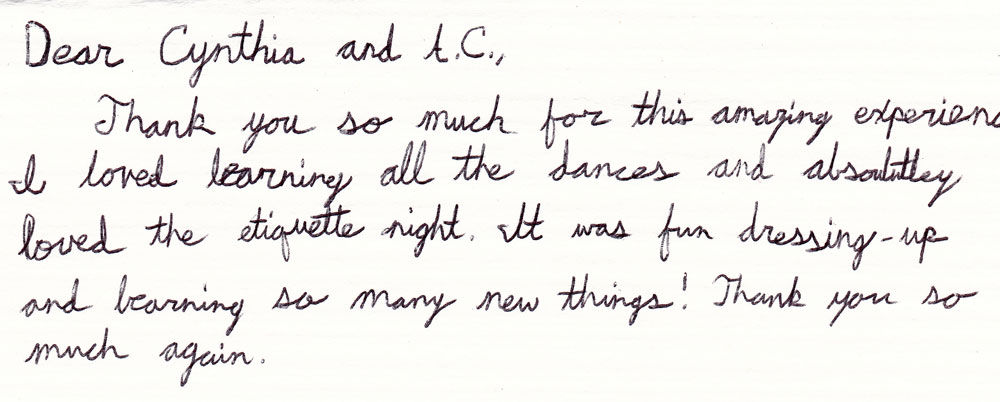 Dear Cynthia and A.C.,
Thank you so much for this amazing experienc
I loved learning all the dances and absolutley
loved the etiquette night. It was fun dressing-up
and learning so many new things! Thank you so
much again.